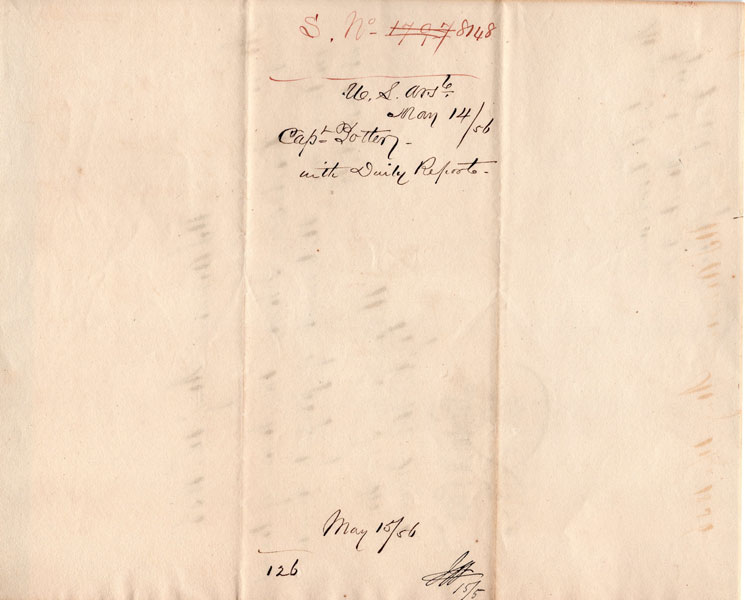 S. No 1797 8148
U. S. Ars l
May 14/56
Capt Totten
with Daily Reports
May 15/56
126
15/5